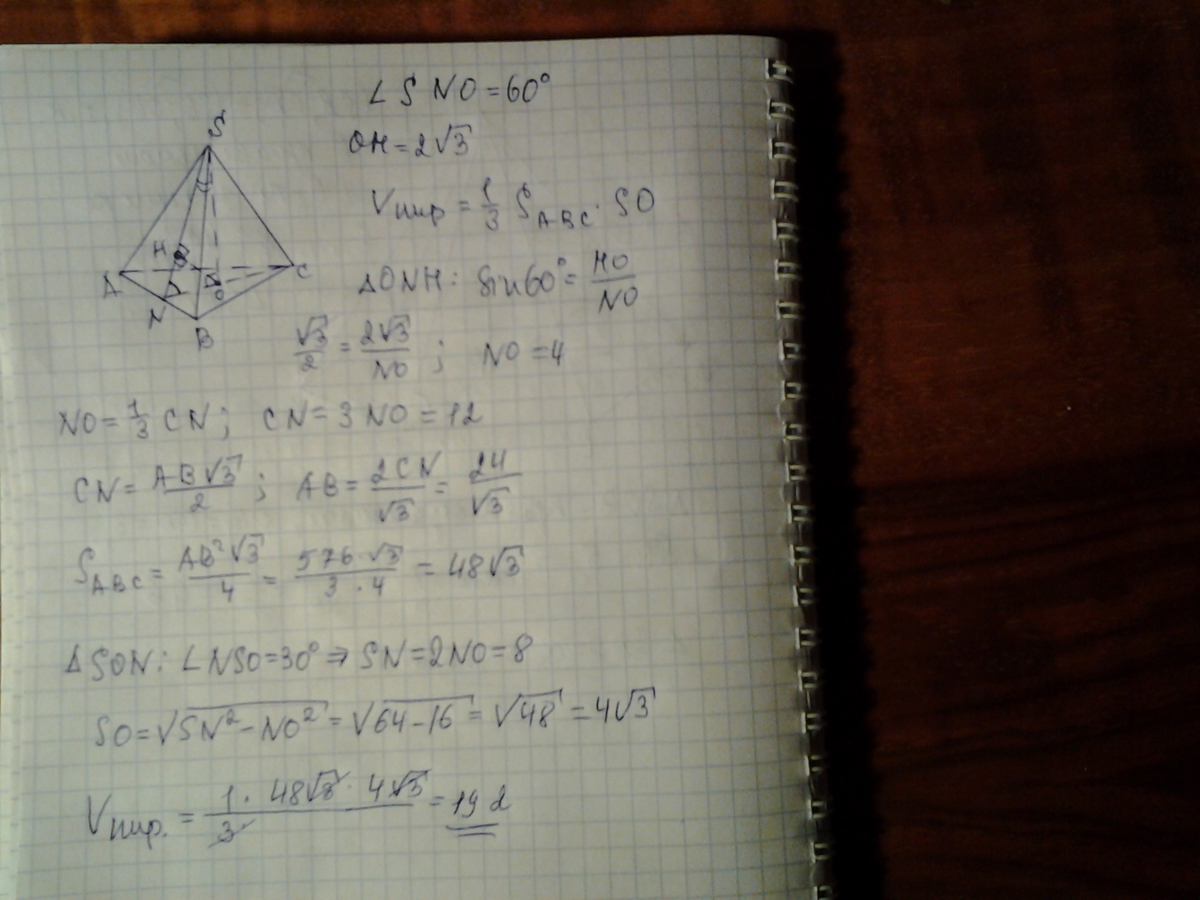 ∠SNO=60°
OH=2√3
Vпир = 1/3 S_ABC · SO
△ONH: sin60°= HO/NO
√3/2 = 2√3/NO ; NO=4
NO= 1/3 CN; CN=3NO=12
CN= AB√3/2 ; AB= 2CN/√3 = 24/√3
S_ABC = AB²√3/4 = 576·√3/3·4 = 48√3
△SON: ∠NSO=30° ⇒ SN=2NO=8
SO=√SN²-NO² = √64-16 = √48 = 4√3
Vпир. = 1·48√3·4√3/3 = 192
S
H
A
C
O
N
B